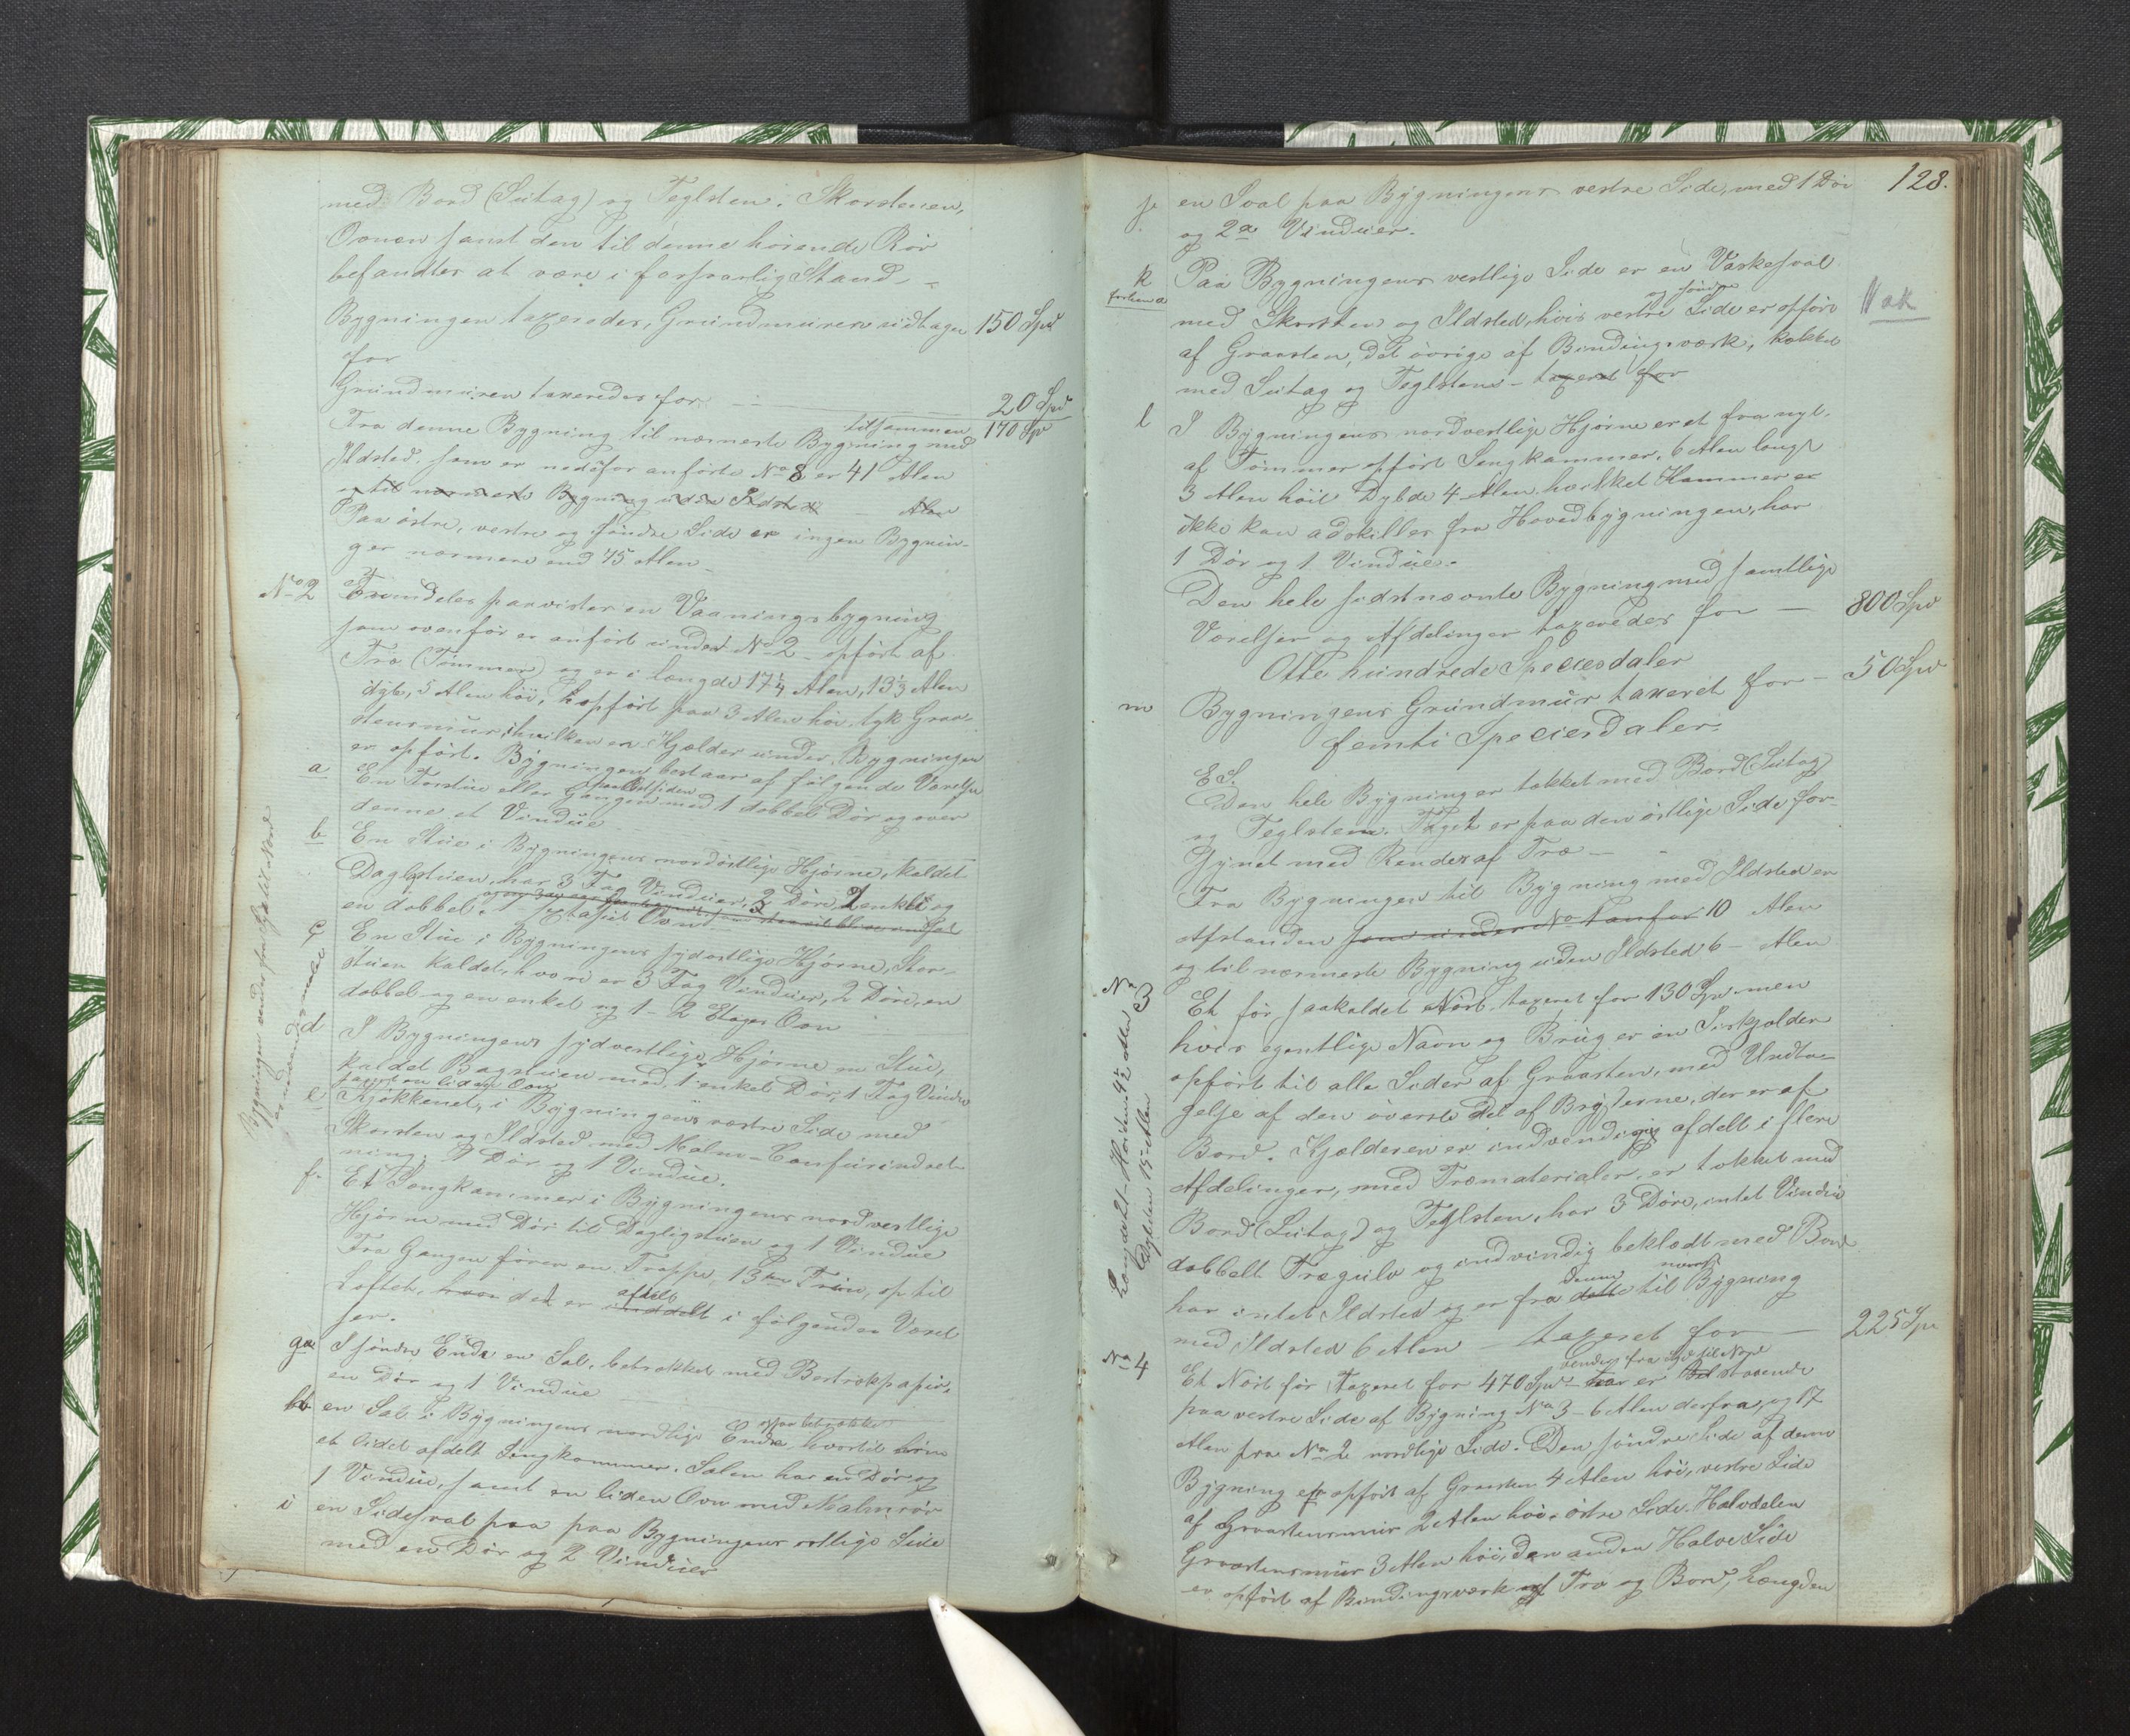 med Bord (Sutag) og Teglsten. Skorstenen,
Ovnen samt den til denne hörende Rör
befandtes at være i forsvarlig Stand -
Bygningen taxeredes, Grundmuren undtagen 150 Spd
for
Grundmuren taxeredes for - 20 Spd
tilsammen 170 Sp
Fra denne Bygning til nærmeste Bygning med
Ildsted, som er nedenfor anförte No 8 er 41 Alen
og til nærmeste Bygning uden Ildsted - Alen
Paa östre, vestre og söndre Side er ingen Bygnin-
ger nærmere end 75 Alen -
No 2 Fremdeles paavistes en Vaaningsbygning
som ovenfor er anfört under No 2 - opfört af
Træ (Tömmer) og er i Længde 17 1/4 Alen, 13 1/3 Alen
dyb, 5 Alen höi, opfört paa 3 Alen höi, tyk Graa-
stensmur, i hvilken en Kjælder under Bygningen
er opfört. Bygningen bestaar af fölgende Værelser
a En Forstue eller Gangen med 1 dobbel Dör og over
paa Östsiden
denne et Vindue
b En Stue i Bygningens nordöstlige Hjörne, kaldet
Daglistuen, har 3 Fag Vinduer, 2 Döre, 1 enkel og
en dobbel. 1 3 Etages Ovn
c En Stue i Bygningens sydostlige Hjörne, Stor-
stuen kaldet, hvori er 3 Fag Vinduer, 2 Döre, en
dobbel og en enkel og 1 - 2 Etages Ovn
d I Bygningens sydvestlige Hjörne en Stue,
kaldet Bagstuen med 1 enkel Dör, 1 Fag Vindue
samt en liden Ovn
e Kjökkenet, i Bygningens vestre Side med
Skorsten og Ildsted med Malm-Comfurindret-
ning. 1 Dör og 1 Vindue.
f. Et Sengkammer i Bygningens nordvestlige
Hjörne med Dör til Dagligstuen og 1 Vindue
Fra Gangen förer en Trappe, 13 Trin, op til
Loftet, hvor det er inddelt i fölgende Værel
afdelt
ser.
ga I söndre Ende en Sal, betrækket med Betrækpapir,
en Dör og 1 Vindue
h en Sal i Bygningens nordlige Ende hvortil
et lidet afdelt Sengkammer. Salen har en Dör og
1 Vindue, samt en liden Ovn med Malmrör
i en Sidesval paa paa Bygningens ostlige Side
med en Dör og 2 Vinduer
Bygningen vender fra Syd til Nord
128.
j. en Sval paa Bygningens vestre Side, med 1 Dör
og 2a Vinduer.
k Paa Bygningens vestlige Side er en Vaskesval
og söndre
med Skorsten og Ildsted, hvis vestre Side er opfört
af Graasten, det övrige af Bindingsværk, tækket
med Sutag og Teglsten - taxeret for
l I Bygningens nordvestlige Hjörne er et fra nyt
af Tömmer opfört Sengkammer, 6 Alen langt
3 Alen höit Dybde 4 Alen, hvilket Kammer er
ikke kan adskilles fra Hovedbygningen, har
1 Dör og 1 Vindue.
Den hele sidstnævnte Bygning med samtlige
Værelser og Afdelinger taxeredes for - 800 Spd
Otte hundrede Speciesdaler
m Bygningens Grundmur taxeret for - 50 Spd
femti Speciesdaler.
Den hele Bygning er tækket med Bord (Sutag)
og Teglsten. Taget er paa den östlige Side for-
synet med Render af Træ -
Fra Bygningen til Bygning med Ildsted er
Afstanden som under No 1 anfört 10 Alen
og til nærmeste Bygning uden Ildsted 6 - Alen
No 3 Et för saakaldet Nöst, taxeret for 130 Spd men
hvis egentlige Navn og Brug er en Kjælder
opfört til alle Sider af Graasten, med Undta-
gelse af den överste Del af Brysterne, der er af
Bord. Kjælderen er indvendig afdelt i flere
Afdelinger, med Træmaterialer, er tækket med
Bord (Sutag) og Teglsten, har 3 Döre, intet Vindue
dobbelt Trægulv og indvendig beklædt med Bord
har intet Ildsted og er fra dette til Bygning
denne nærmeste
med Ildsted 6 Alen - taxeret for - 225 Spd
Længde 21 - Höiden 4 1/2 Alen
Dybden 15 Alen
No 4 Et Nöst för taxeret for 470 Spd - har er staaende
vender fra Syd til Nord
paa vestre Side af Bygning No 3 - 6 Alen derfra, og 17
Alen fra No 2 nordlige Side. Den söndre Side af denne
Bygning er opfört af Graasten 4 Alen höi, vestre Side
af Graastensmur 2 Alen höi, östre Side Halvdelen
Graastensmur 3 Alen höi, den anden Halve Side
er opfört af Bindingsværk af Træ og Bord, Længden